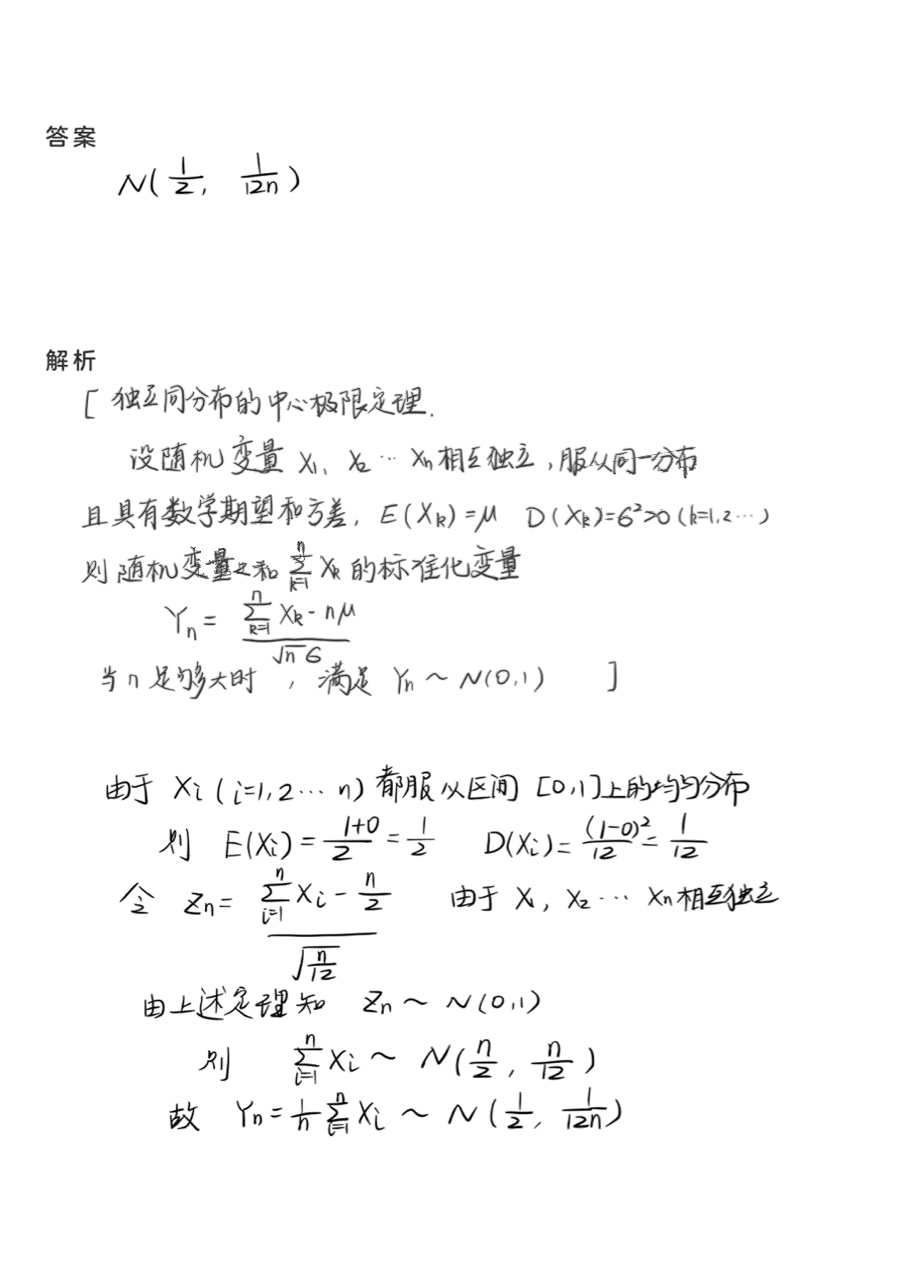 答案
N(1/2, 1/12n)
解析
[ 独立同分布的中心极限定理.
设随机变量 X₁, X₂ … Xₙ 相互独立, 服从同一分布
且具有数学期望和方差, E(Xₖ)=μ D(Xₖ)=6²>0 (k=1,2…)
则随机变量之和 ∑ₖ₌₁ⁿ Xₖ 的标准化变量
Yₙ = (∑ₖ₌₁ⁿ Xₖ - nμ) / (√n 6)
当 n 足够大时, 满足 Yₙ ~ N(0,1) ]
由于 Xᵢ (i=1,2… n) 都服从区间 [0,1] 上的均匀分布
则 E(Xᵢ) = (1+0)/2 = 1/2 D(Xᵢ) = (1-0)²/12 = 1/12
令 Zₙ = (∑ᵢ₌₁ⁿ Xᵢ - n/2) / √(n/12) 由于 X₁, X₂ … Xₙ 相互独立
由上述定理知 Zₙ ~ N(0,1)
则 ∑ᵢ₌₁ⁿ Xᵢ ~ N(n/2, n/12)
故 Yₙ = 1/n ∑ᵢ₌₁ⁿ Xᵢ ~ N(1/2, 1/12n)